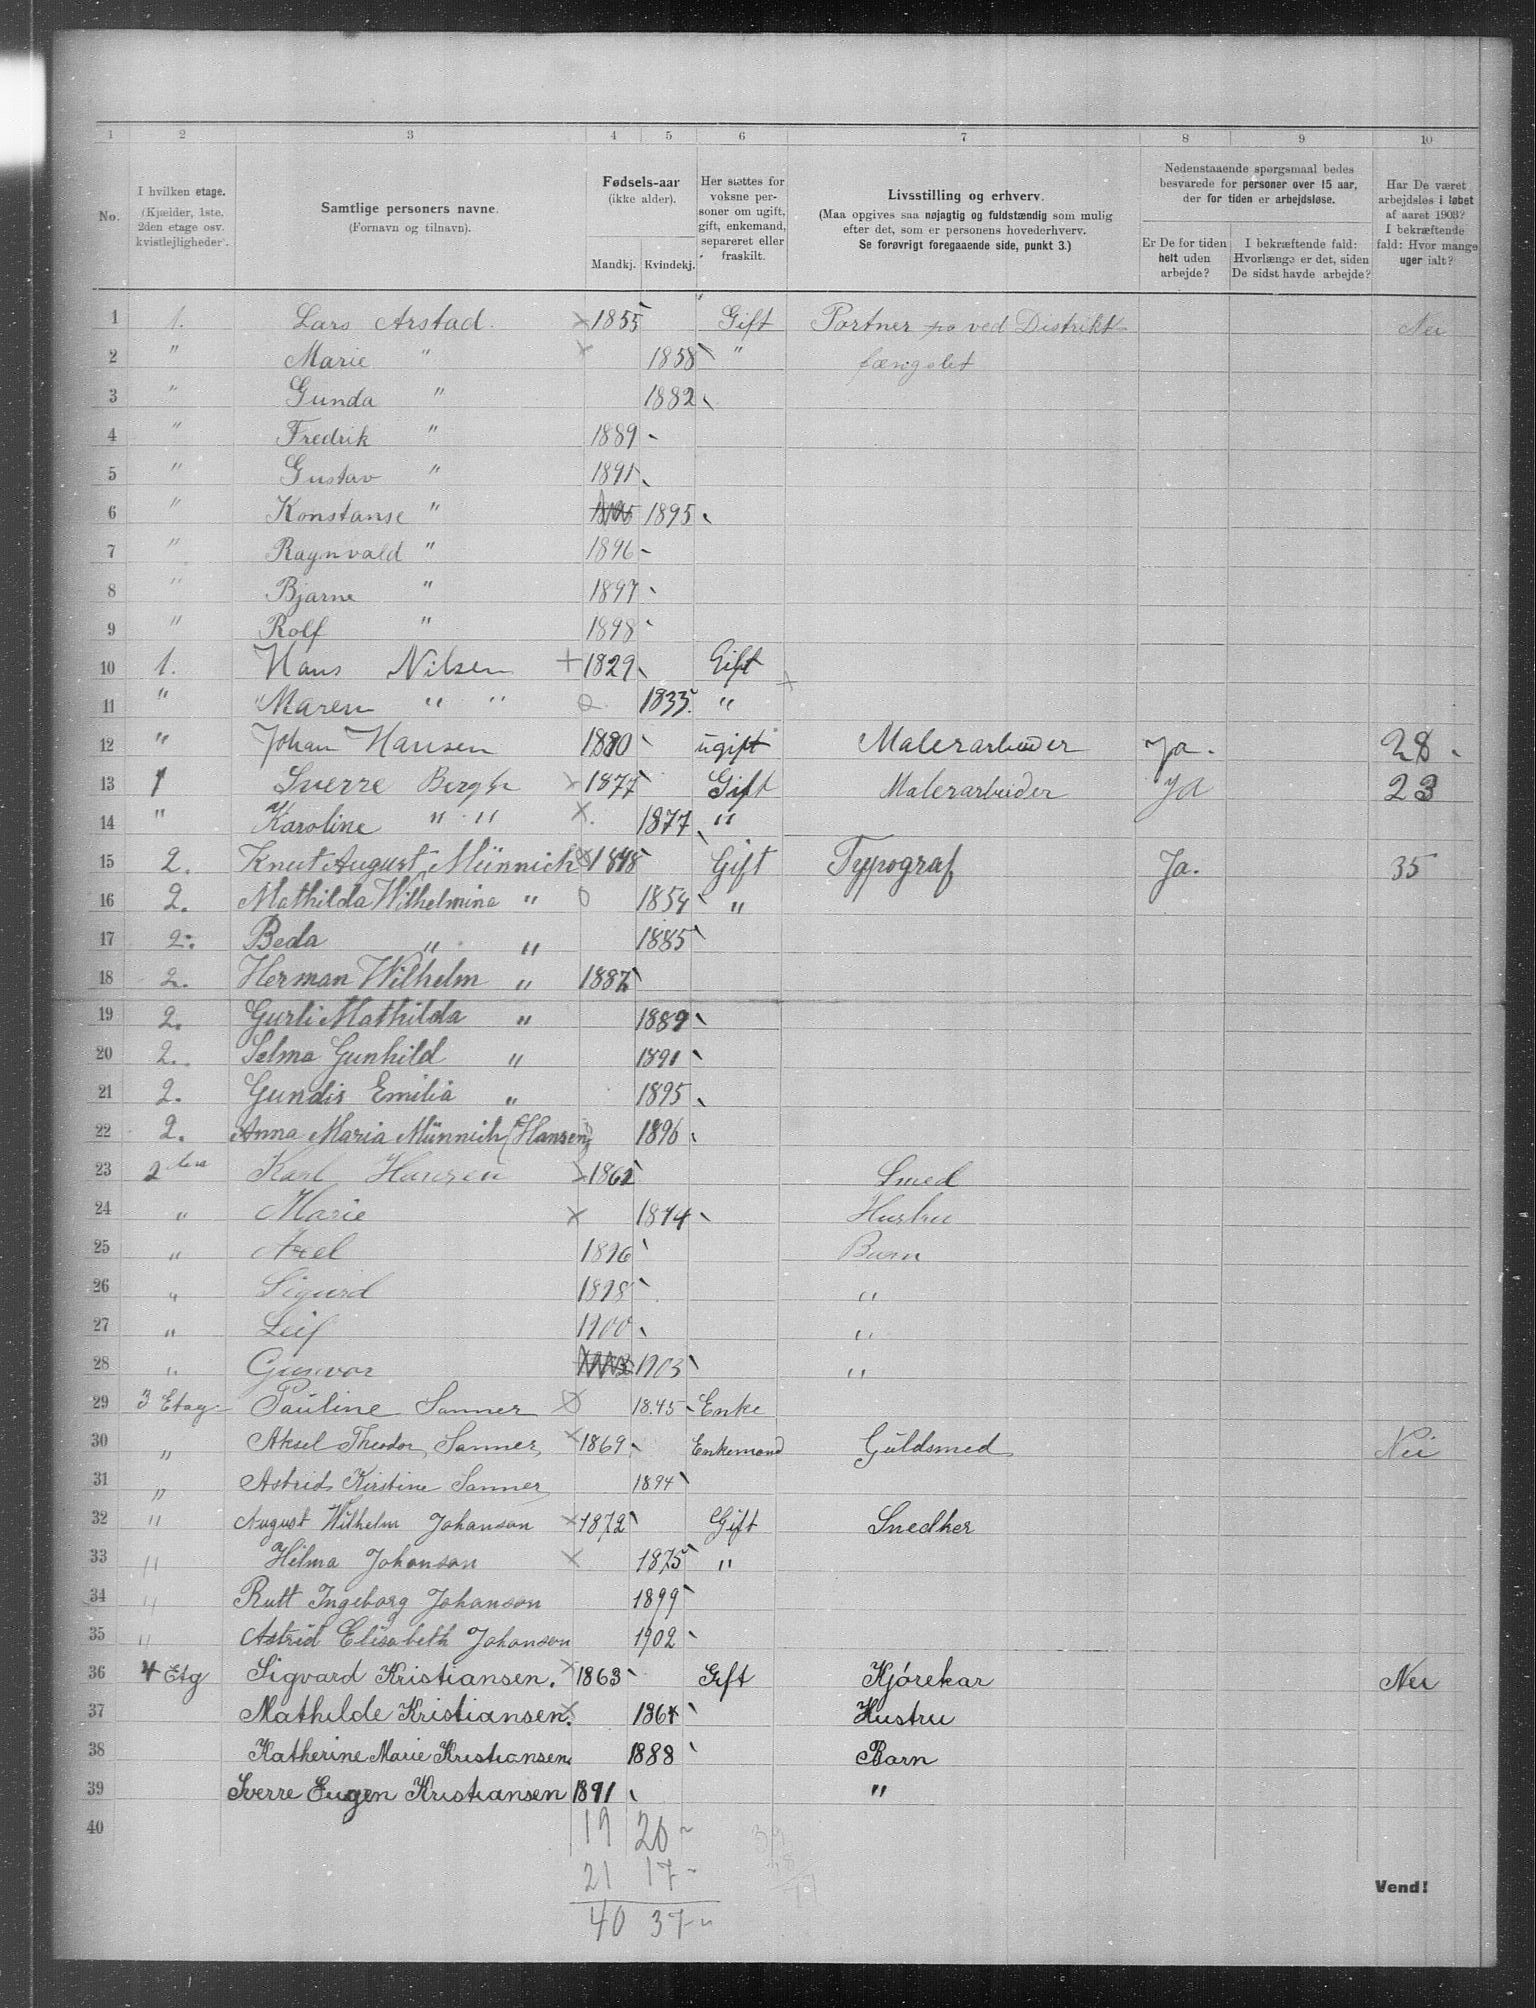 1 2 3 4 5 6 7 8 9 10
No. I hvilken etage. (Kjælder, 1ste, 2den etage osv. kvistlejligheder). Samtlige personers navne. (Fornavn og tilnavn). Fødsels-aar (ikke alder). Mandkj. Kvindekj. Her sættes for voksne personer om ugift, gift, enkemand, separeret eller fraskilt. Livsstilling og erhverv. (Maa opgives saa nøjagtig og fuldstændig som mulig efter det, som er personens hovederhverv. Se forøvrigt foregaaende side, punkt 3.) Nedenstaaende spørgsmaal bedes besvarede for personer over 15 aar, der for tiden er arbejdsløse. Er De for tiden helt uden arbejde? I bekræftende fald: Hvorlænge er det, siden De sidst havde arbejde? Har De været arbejdsløs i løbet af aaret 1903? I bekræftende fald: Hvor mange uger ialt?
1 1. Lars Arstad. × 1855 Gift Portner po ved Distrikts Nei
2 " Marie " × 1858 " fængslet
3 " Gunda " 1882
4 " Fredrik " 1889
5 " Gustav " 1891
6 " Konstanse " 1895
7 " Ragnvald " 1896
8 " Bjarne " 1897
9 " Rolf " 1898
10 1. Hans Nilsen + 1829 Gift +
11 " Maren " " 1835. "
12 " Johan Hansen 1880 ugift Malerarbeider Ja. 28
13 1 Sverre Bergh × 1877 Gift Malerarbeider Ja 23
14 " Karoline " " ×. 1877 "
15 2. Knut August Münnich 1848 Gift Typograf Ja. 35
16 2. Mathilda Wilhelmina " 0 1854 "
17 2. Beda " " 1885
18 2. Herman Wilhelm " 1887
19 2. Gurli Mathilda " 1889
20 2. Selma Gunhild " 1891
21 2. Gundis Emilia " 1895
22 2. Anna Maria Münnich (Hansen) 1896
23 2den Karl Hansen × 1862 Smed
24 " Marie × 1874 Hustru
25 " Axel 1896 Barn
26 " Sigurd 1898 "
27 " Leif 1900 "
28 " Gunvor 1903 "
29 3 Etag Pauline Sanner 1845 Enke
30 " Aksel Theodor Sanner × 1869 Enkemand Guldsmed Nei
31 " Astrid Kirstine Sanner 1894
32 " August Wilhelm Johanson × 1872 Gift Snedker
33 " Hilma Johanson × 1875 "
34 " Rutt Ingeborg Johanson 1899
35 " Astrid Elisabeth Johanson 1902
36 4 Etg Sigvard Kristiansen. × 1863 Gift Kjörekar Nei
37 Mathilde Kristiansen. × 1864 Hustru
38 Katherine Marie Kristiansen 1888 Barn
39 Sverre Eugen Kristiansen 1891 "
40 19 20
21 17
40 37
Vend!